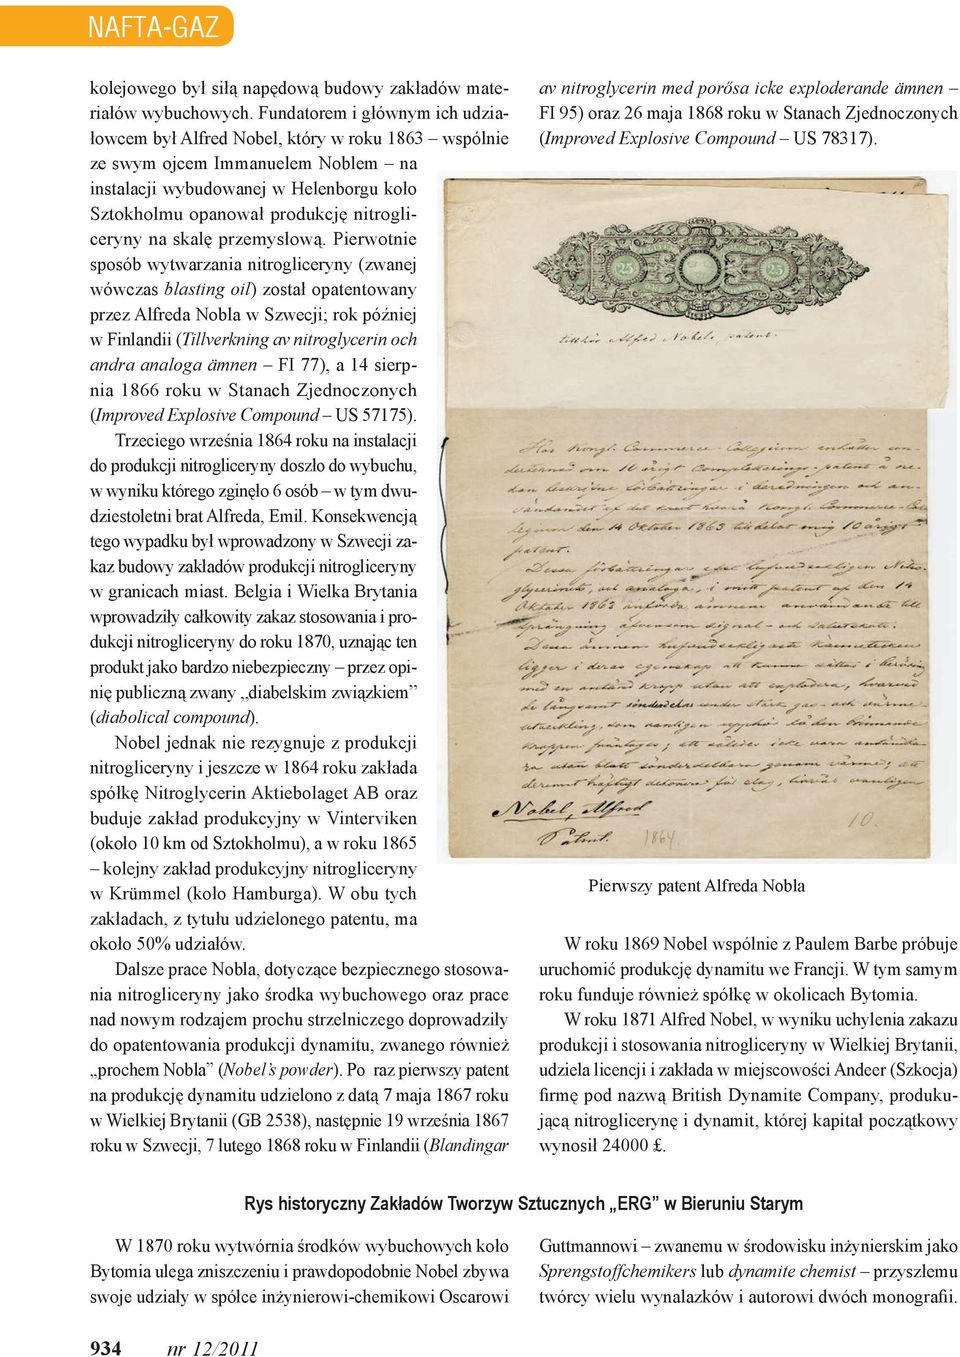 NAFTA-GAZ
kolejowego był siłą napędową budowy zakładów mate-
riałów wybuchowych. Fundatorem i głównym ich udzia-
łowcem był Alfred Nobel, który w roku 1863 wspólnie
ze swym ojcem Immanuelem Noblem – na
instalacji wybudowanej w Helenborgu koło
Sztokholmu opanował produkcję nitrogli-
ceryny na skalę przemysłową. Pierwotnie
sposób wytwarzania nitrogliceryny (zwanej
wówczas blasting oil) został opatentowany
przez Alfreda Nobla w Szwecji; rok później
w Finlandii (Tillverkning av nitroglycerin och
andra analoga ämnen – FI 77), a 14 sierp-
nia 1866 roku w Stanach Zjednoczonych
(Improved Explosive Compound – US 57175).
Trzeciego września 1864 roku na instalacji
do produkcji nitrogliceryny doszło do wybuchu,
w wyniku którego zginęło 6 osób – w tym dwu-
dziestoletni brat Alfreda, Emil. Konsekwencją
tego wypadku był wprowadzony w Szwecji za-
kaz budowy zakładów produkcji nitrogliceryny
w granicach miast. Belgia i Wielka Brytania
wprowadziły całkowity zakaz stosowania i pro-
dukcji nitrogliceryny do roku 1870, uznając ten
produkt jako bardzo niebezpieczny – przez opi-
nię publiczną zwany „diabelskim związkiem”
(diabolical compound).
Nobel jednak nie rezygnuje z produkcji
nitrogliceryny i jeszcze w 1864 roku zakłada
spółkę Nitroglycerin Aktiebolaget AB oraz
buduje zakład produkcyjny w Vinterviken
(około 10 km od Sztokholmu), a w roku 1865
– kolejny zakład produkcyjny nitrogliceryny
w Krümmel (koło Hamburga). W obu tych
zakładach, z tytułu udzielonego patentu, ma
około 50% udziałów.
Dalsze prace Nobla, dotyczące bezpiecznego stosowa-
nia nitrogliceryny jako środka wybuchowego oraz prace
nad nowym rodzajem prochu strzelniczego doprowadziły
do opatentowania produkcji dynamitu, zwanego również
„prochem Nobla” (Nobel’s powder). Po raz pierwszy patent
na produkcję dynamitu udzielono z datą 7 maja 1867 roku
w Wielkiej Brytanii (GB 2538), następnie 19 września 1867
roku w Szwecji, 7 lutego 1868 roku w Finlandii (Blandingar
av nitroglycerin med porősa icke exploderande ämnen –
FI 95) oraz 26 maja 1868 roku w Stanach Zjednoczonych
(Improved Explosive Compound – US 78317).
25 25
tillhör Alfred Nobel, patent.
Hos Kongl. Commerce-Collegium enhåller un-
dertecknad om 10 årigt Complæterings-patent å ne-
dan beskrifne förbättringar i beredningen och an-
vändandet af det krut hvarå Kongl. Commerce-Col-
legium den 14 Oktober 1863 tilldelat mig 10 årigt
patent.
Dessa förbättringar
Oktober 1863
Nobel, Alfred
Patent. 1864. 10.
Pierwszy patent Alfreda Nobla
W roku 1869 Nobel wspólnie z Paulem Barbe próbuje
uruchomić produkcję dynamitu we Francji. W tym samym
roku funduje również spółkę w okolicach Bytomia.
W roku 1871 Alfred Nobel, w wyniku uchylenia zakazu
produkcji i stosowania nitrogliceryny w Wielkiej Brytanii,
udziela licencji i zakłada w miejscowości Andeer (Szkocja)
firmę pod nazwą British Dynamite Company, produku-
jącą nitroglicerynę i dynamit, której kapitał początkowy
wynosił 24000 £.
Rys historyczny Zakładów Tworzyw Sztucznych „ERG” w Bieruniu Starym
W 1870 roku wytwórnia środków wybuchowych koło
Bytomia ulega zniszczeniu i prawdopodobnie Nobel zbywa
swoje udziały w spółce inżynierowi-chemikowi Oscarowi
Guttmannowi – zwanemu w środowisku inżynierskim jako
Sprengstoffchemikers lub dynamite chemist – przyszłemu
twórcy wielu wynalazków i autorowi dwóch monografii.
934 nr 12/2011